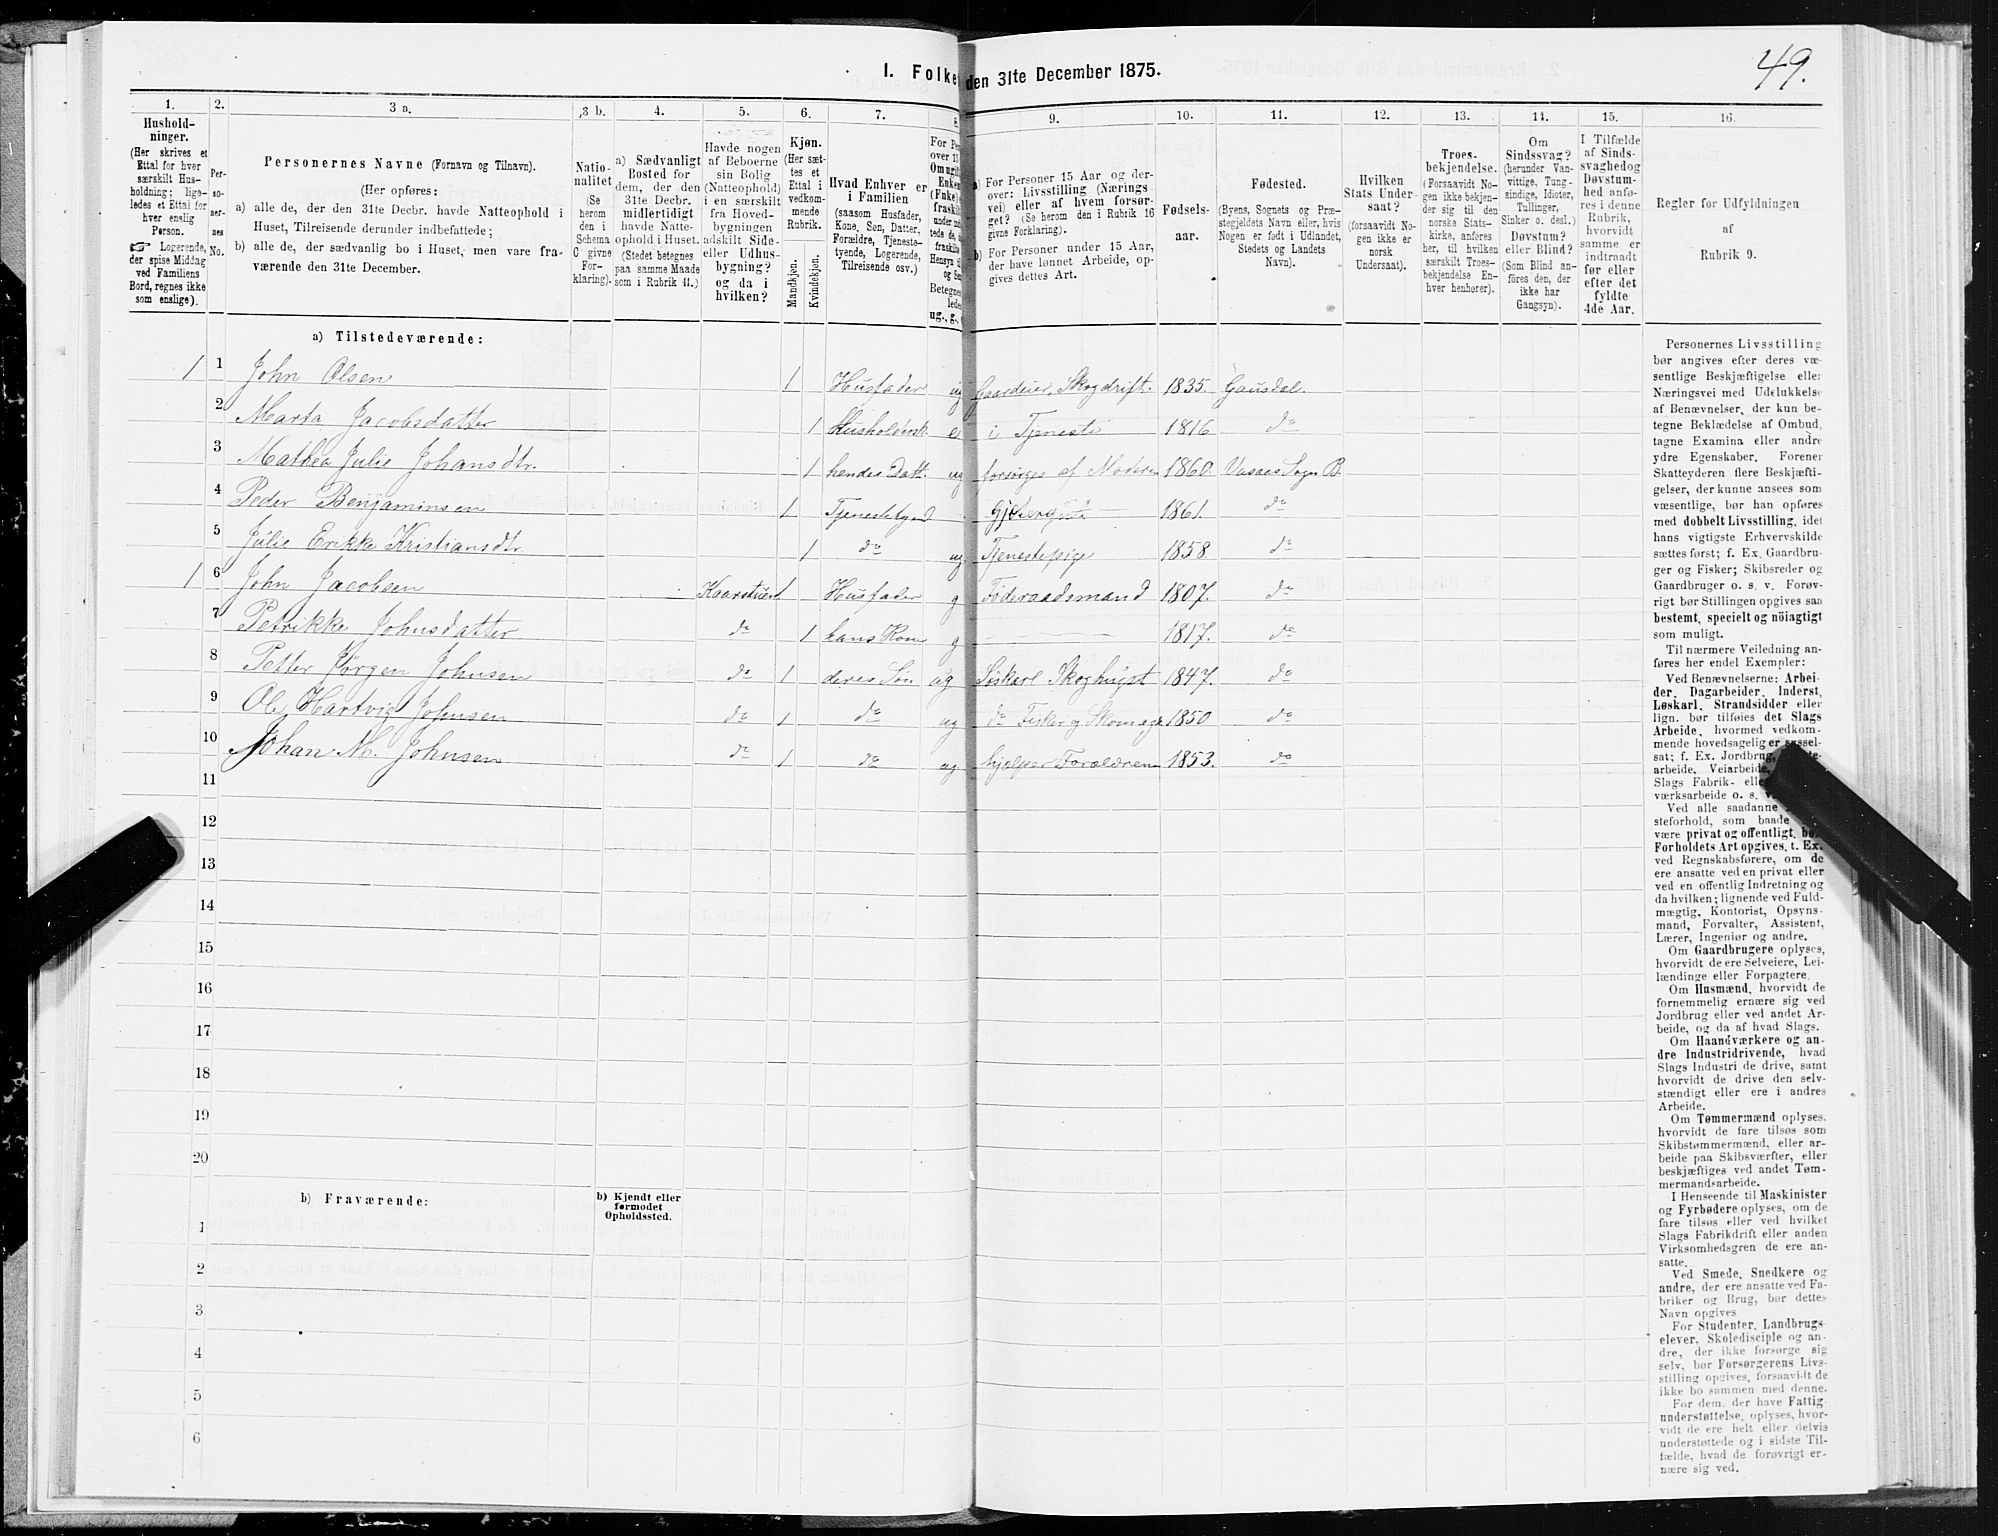 49.
1. Folke den 31te December 1875.
1. 2. 3 a. 3 b. 4. 5. 6. 7. 8. 9. 10. 11. 12. 13. 14. 15. 16.
Hushold-
ninger.
(Her skrives et
Ettal for hver
særskilt Hus-
holdning; lige-
ledes et Ettal for
hver enslig
Person.
☞ Logerende,
der spise Middag
ved Familiens
Bord, regnes ikke
som enslige).
Per-
so-
ner-
nes
No.
Personernes Navne (Fornavn og Tilnavn).
(Her opføres:
a) alle de, der den 31te Decbr. havde Natteophold i
Huset, Tilreisende derunder indbefattede;
b) alle de, der sædvanlig bo i Huset, men vare fra-
værende den 31te December.
Natio-
nalitet
(Se
herom
den i
Schema
C givne
For-
klaring).
a) Sædvanligt
Bosted for
dem, der den
31te Decbr.
midlertidigt
havde Natte-
ophold i Huset.
(Stedet betegnes
paa samme Maade
som i Rubrik 11.)
Havde nogen
af Beboerne
sin Bolig
(Natteophold)
i en særskilt
fra Hoved-
bygningen
adskilt Side-
eller Udhus-
bygning?
og da i
hvilken?
Kjøn.
(Her sæt-
tes et
Ettal i
vedkom-
mende
Rubrik.
Mandkjøn.
Kvindekjøn.
Hvad Enhver er
i Familien
(saasom Husfader,
Kone, Søn, Datter,
Forældre, Tjeneste-
tyende, Logerende,
Tilreisende osv.)
For Pe
over 15
Om ugift
Enken
(Fnke)
fraskilt
under
tede de,
fraskilte
Hensyn t
og Se
Betegnes
lede
ug., g.,
a) For Personer 15 Aar og der-
over: Livsstilling (Nærings
vei) eller af hvem forsør-
get? (Se herom den i Rubrik 16
givne Forklaring).
b) For Personer under 15 Aar,
der have lønnet Arbeide, op-
gives dettes Art.
Fødsels-
aar.
Fødested.
(Byens, Sognets og Præ-
stegjeldets Navn eller, hvis
Nogen er født i Udlandet,
Stedets og Landets
Navn).
Hvilken
Stats Under-
saat?
(forsaavidt No-
gen ikke er
norsk
Undersaat).
Troes-
bekjendelse.
(Forsaavidt No-
gen ikke bekjen-
der sig til den
norske Stats-
kirke, anføres
her, til hvilken
særskilt Troes-
bekjendelse En-
hver henhører).
Om
Sindssvag?
(herunder Van-
vittige, Tung-
sindige, Idioter,
Tullinger,
Sinker o. desl.)
Døvstum?
eller Blind?
(Som Blind an-
føres den, der
ikke har
Gangsyn).
I Tilfælde
af Sinds-
svaghed og
Døvstum-
hed anfø-
res i denne
Rubrik,
hvorvidt
samme er
indtraadt
før eller
efter det
fyldte
4de Aar.
Regler for Udfyldningen
af
Rubrik 9.
a) Tilstedeværende:
1 1 John Olsen 1 Husfader ug Gaardeier, Skogdrift. 1835. Gausdal.
2 Marta Jacobsdatter 1 Husholdersk. e i Tjeneste 1816 do
3 Mathea Julie Johansdtr. 1 hendes Datt. ug forsørges af Moderen 1860. Vasaas Sogn B.
4 Peder Benjaminsen 1 Gjætergut 1861. do
5 Julie Erikke Kristiansdtr 1 do ug Tjenestepige 1858. do
1 6 John Jacobsen 1 Husfader g Føderaadsmand 1807. do
7 Petrikke Johnsdatter do 1 hans Kone g 1817. do
8 Petter Jørgen Johnsen do 1 deres Søn ug Løskarl Skoghugst 1847. do
9 Ole Hartvig Johnsen do 1 do ug do Fisker og Skomager 1850 do
10 Johan M. Johnsen do 1 do ug hjelper Forældrene 1853. do
11
12
13
14
15
16
17
18
19
20
b) Fraværende:
b) Kjendt eller
formodet
Opholdssted.
1
2
3
4
5
6
Personernes Livsstilling
bør angives efter deres væ-
sentlige Beskjæftigelse eller
Næringsvei med Udelukkelse
af Benævnelser, der kun be-
tegne Beklædelse af Ombud,
tagne Examina eller andre
ydre Egenskaber. Forener
Skatteyderen flere Beskjæfti-
gelser, der kunne ansees som
væsentlige, bør han opføres
med dobbelt Livsstilling, idet
hans vigtigste Erhvervskilde
sættes først; f. Ex. Gaardbru-
ger og Fisker; Skibsreder og
Gaardbruger o. s. v. Forøv-
rigt bør Stillingen opgives saa
bestemt, specielt og nöiagtigt
som muligt.
Til nærmere Veiledning an-
føres her endel Exempler:
Ved Benævnelserne: Arbei-
der, Dagarbeider, Inderst,
Løskarl, Strandsidder eller
lign. bør tilføies det Slags
Arbeide, hvormed vedkom-
mende hovedsagelig er syssel-
sat; f. Ex. Jordbrug,
arbeide, Veiarbeide,
Slags Fabrik- elle
værksarbeide o. s. v.
Ved alle saadanne
steforhold, som baade
være privat og offentligt, bø
Forholdets Art opgives, t. Ex.
ved Regnskabsførere, om de
ere ansatte ved en privat eller
ved en offentlig Indretning og
da hvilken; lignende ved Fuld-
mægtig, Kontorist, Opsyns-
mand, Forvalter, Assistent,
Lærer, Ingeniør og andre.
Om Gaardbrugere oplyses,
hvorvidt de ere Selveiere, Lei-
lændinge eller Forpagtere.
Om Husmænd, hvorvidt de
fornemmelig ernære sig ved
Jordbrug eller ved andet Ar-
beide, og da af hvad Slags.
Om Haandværkere og an-
dre Industridrivende, hvad
Slags Industri de drive, samt
hvorvidt de drive den selv-
stændigt eller ere i andres
Arbeide.
Om Tømmermænd oplyses,
hvorvidt de fare tilsøs som
Skibstømmermænd, eller ar-
beide paa Skibsværfter, eller
beskjæftiges ved andet Tøm-
mermandsarbeide.
I Henseende til Maskinister
og Fyrbødere oplyses, om de
fare tilsøs eller ved hvilket
Slags Fabrikdrift eller anden
Virksomhedsgren de ere an-
satte.
Ved Smede, Snedkere og
andre, der ere ansatte ved Fa-
briker og Brug, bør dettes
Navn opgives
For Studenter, Landbrugs-
elever, Skoledisciple og an-
dre, der ikke forsørge sig
selv, bør Forsørgerens Livs-
stilling opgives, forsaavidt de
ikke bo sammen med denne.
For dem, der have Fattig-
understøttelse, oplyses, hvor-
vidt de ere helt eller delvis
understøttede og i sidste Til-
fælde, hvad de forøvrigt er-
nære sig ved.